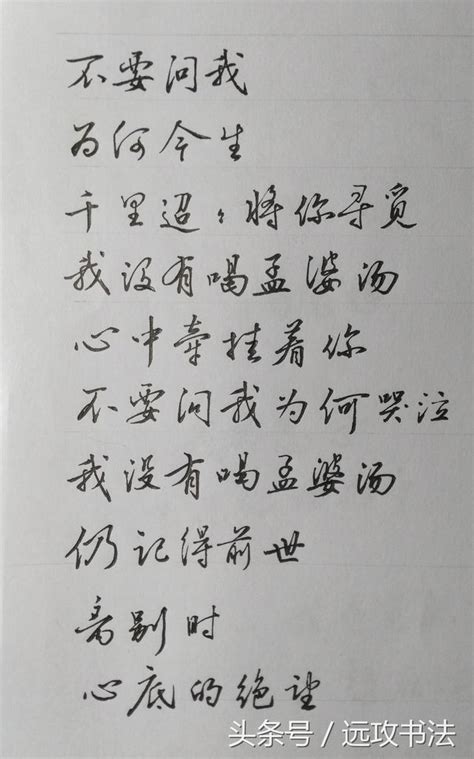 不要问我
为何今生
千里迢迢将你寻觅
我没有喝孟婆汤
心中牵挂着你
不要问我为何哭泣
我没有喝孟婆汤
仍记得前世
离别时
心底的绝望
头条号/远攻书法